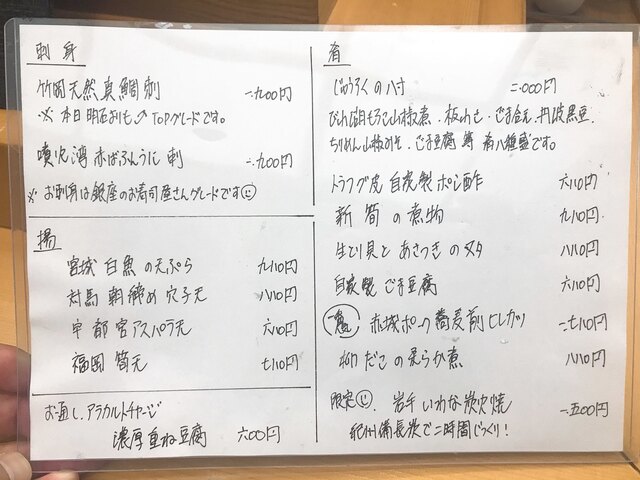 刺身
竹岡天然真鯛刺 一、九〇〇円
※本日明石よりも↗TOPグレードです。
噴火湾 赤ばふんうに 刺 一、九〇〇円
※お刺身は銀座のお寿司屋さんグレードです
揚
宮城 白魚の天ぷら 九八〇円
対馬 朝締め 穴子天 八八〇円
宇都宮アスパラ天 六八〇円
福岡 筍天 七八〇円
お通し、アラカルトチャージ
濃厚重ね豆腐 六〇〇円
肴
じゅうろくの八寸 二、〇〇〇円
びわ湖もろこ山椒煮、板わさ、ごま和え、丹波黒豆、
ちりめん山椒のせ、ごま豆腐 等 肴八種盛です。
トラフグ皮 自家製ポン酢 六八〇円
新筍の煮物 九八〇円
生とり貝とあさつきのヌタ 八八〇円
自家製ごま豆腐 六八〇円
赤城ポーク蕎麦前ヒレカツ 一、七八〇円
柳だこの柔らか煮 八八〇円
限定 岩手いわな炭火焼 一、五〇〇円
紀州備長炭で二時間じっくり!